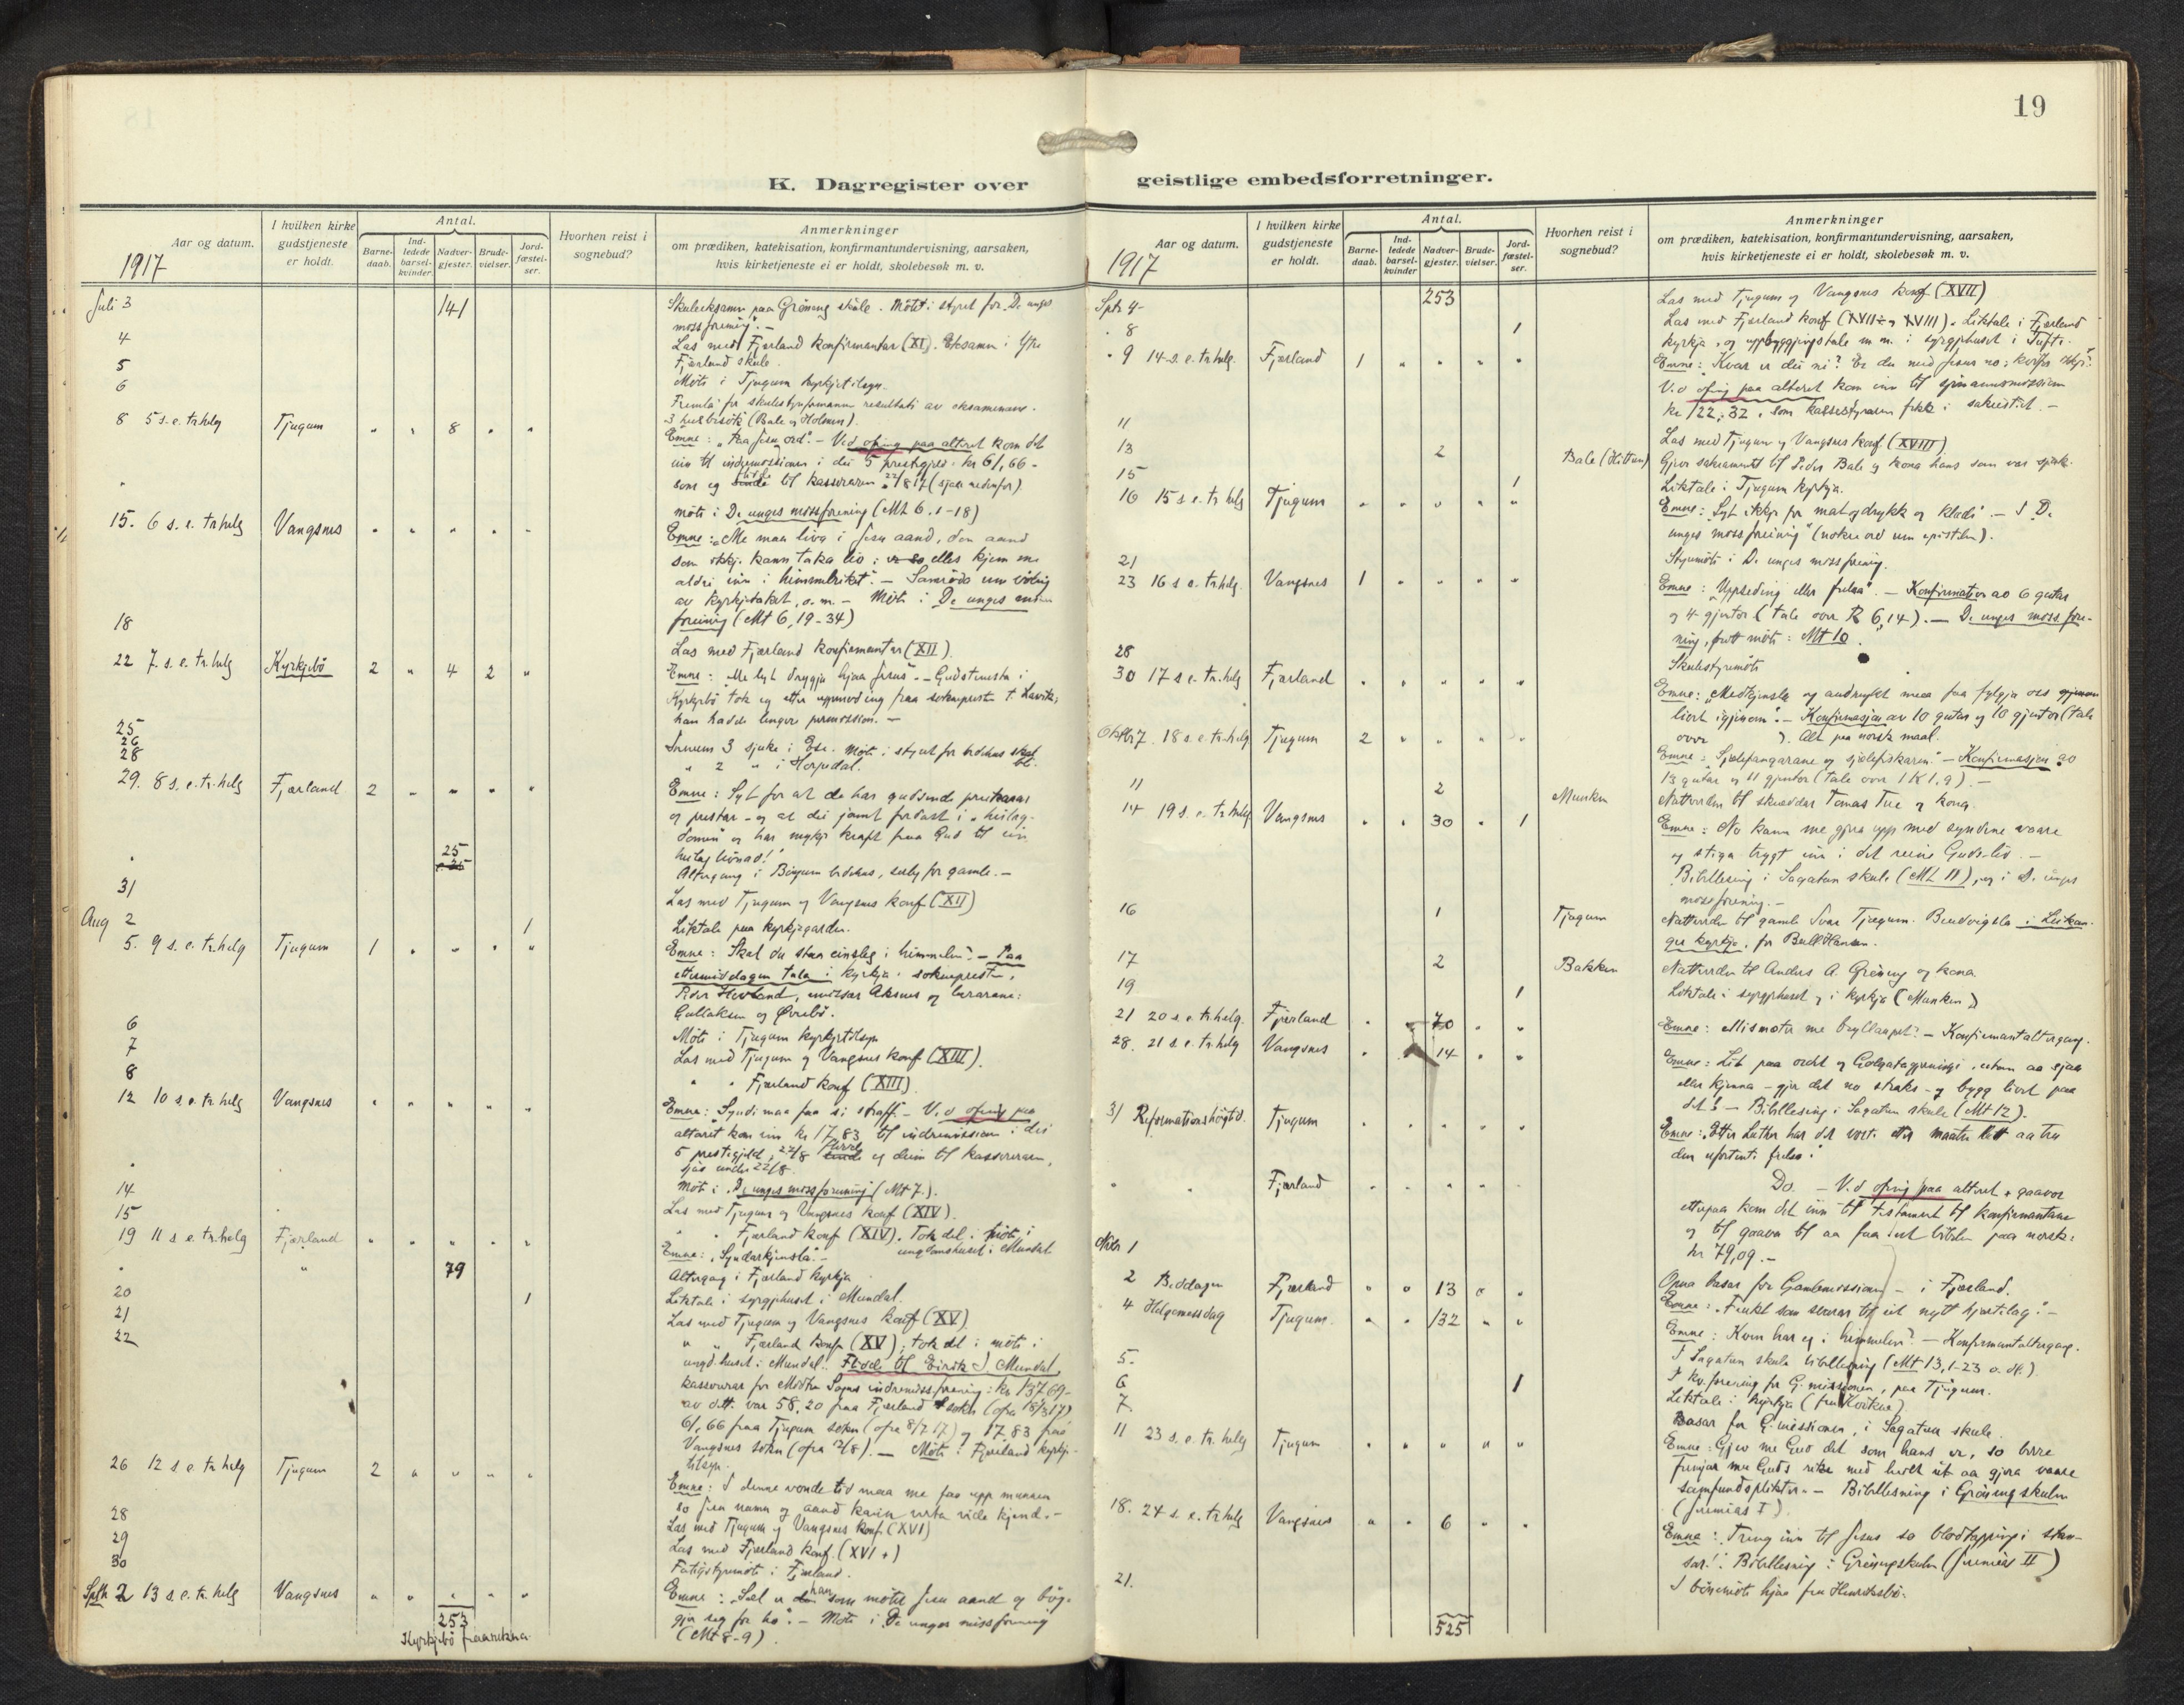 19
K. Dagregister over geistlige embedsforretninger.
Aar og datum.
I hvilken kirke gudstjeneste er holdt.
Antal.
Barne-daab.
Ind-ledede barsel-kvinder.
Nadver-gjester.
Brude-vielser.
Jord-fæstel-ser.
Hvorhen reist i sognebud?
Anmerkninger
om prædiken, katekisation, konfirmantundervisning, aarsaken,
hvis kirketjeneste ei er holdt, skolebesøk m. v.
1917
Juli 3 141 Skuleeksamen paa Grøneng skule. Møtt i styret for De unges
missforening". —
4 Las med Fjærland konfirmantar (XI). Eksamen i Ytre
5 Fjærland skule.
6 Møte i Tjugum kyrkjetilsyn.
resultati av eksamenane.
3 husbesøk (Bale og Holmen).
8 5 s. e. tr.helg Tjugum " " 8 " " Emne: "Fraa Jesu ord". — Ved ofring paa altaret kom det
inn til indremissionen i dei 5 prestegjeld. kr 61,66 —
som eg til kasseraren 22/8 17 (sjaa nedanfor)
" møte i De unges missforening (Mt 6. 1-18)
15. 6 s. e. tr.helg Vangsnes " " " " " Emne: "Me maa liva i Jesu aand, den aand
som ikkje kann taka liv; elles kjem me
aldri inn i himmelriket". —
av kyrkjetaket, o. m. — Møte i De unges
foreining (Mt 6, 19-34)
18 Las med Fjærland konfirmantar (XII).
22 7. s. e. tr.helg Kyrkjebø 2 " 4 2 " Emne: "Me lyt dryggja hjaa Jesus". — Gudstenesta i
Kyrkjebø tok eg etter uppmoding fraa sokneprest t. Lavik;
han hadde lenger permission. —
25
26 3 sjuke i Ese. Møte i styret for
28 " 2 " i Hopedal.
29. 8 s. e. tr.helg Fjærland 2 " " " " Emne: Syt for at de har gudsende
og prestar — og at dei jamt i "heilag-
domen" og har mykje kraft fraa Gud til ein
heilag livnad!
" 25 Altergang i Bøyum bedehus, serleg for gamle. —
31 Las med Tjugum og Vangsnes konf (XII)
Aug 2 1 Liktale paa kyrkjegarden.
5. 9 s. e. tr.helg Tjugum 1 " " " " Emne: Skal du staa einsleg i himmelen? — Paa
ettermiddagen tala i kyrkja: soknepresten,
Peder Hovland, Aksnes og lærarane:
Gullaksen og Øvrebø.
6 Møte i Tjugum kyrkjetilsyn
7 Las med Tjugum og Vangsnes konf (XIII).
8 " " Fjærland konf (XIII)
12 10 s. e. tr.helg Vangsnes " " " " " Emne: Syndi maa faa si straff. — Ved ofring paa
altaret kom inn kr 17,83 til indremissionen i dei
5 prestegjeld, 22/8 eg deim til kasseraren,
sjaa under 22/8.
" Møte i "De unges missforening" (Mt 7.).
14 Las med Tjugum og Vangsnes konf (XIV).
15 " " Fjærland konf (XIV). Tok del i møte i
ungdomshuset i Mundal
19 11 s. e. tr.helg Fjærland " " " " " Emne: "Syndarkjensla". —
" " 79 Altergang i Fjærland kyrkja
20 1 Liktale i syrgjehuset i Mundal.
21 Las med Tjugum og Vangsnes konf (XV)
22 " " Fjærland konf (XV); tok del i møte i
ungd.huset i Mundal. til Eirik J Mundal
kasserar for Midtre Sogns indremiss.forening: kr 137,69 —
av dette var 58,20 fraa Fjærland sokn (ofra 18/3 17)
61,66 fraa Tjugum sokn (ofra 8/7 17) og 17,83 fraa
Vangsnes sokn (ofra 12/8). — Møte i Fjærland kyrkje-
tilsyn.
26 12 s. e. tr.helg Tjugum 2 " " " " Emne: I denne vonde tid maa me faa upp munnen
so Jesu namn og aand kann verta vide kjend. —
28 Las med Tjugum og Vangsnes konf. (XVI)
29 Las med Fjærland konf. (XVI +)
30 Fatigstyremøte i Fjærland.
Septb 2 13 s. e. tr.helg Vangsnes " " " " " Emne: "Sæl er han som møter Jesu aand og bøy-
gjer seg for ho". — Møte i De unges missforening
(Mt 8-9).
253
Kyrkjebø fraarekna
1917
Sptr 4 253 Las med Tjugum og Vangsnes konf (XVII)
" 8 1 Las med Fjærland konf (XVII og XVIII). Liktale i Fjærland
kyrkja, og uppbyggjingstale m. m. i syrgjehuset i Tufte.
" 9 14 s. e. tr.helg. Fjærland 1 " " " " Emne: "Kvar er dei ni? Er du med Jesus no; kvifor ikkje?"
Ved ofring paa alteret kom inn til sjømannsmissionen
kr 122,32, som kassestyraren fekk i sakristiet. —
11 Las med Tjugum og Vangsnes konf (XVIII)
13 2 Bale (Hittun) Gjev sakramentet til Peder Bale og kona hans som var sjuk.
15 1 Liktale i Tjugum kyrkja.
16 15 s. e. tr helg Tjugum " " " " " Emne: "Syt ikkje for mat og drykk og klæde". — I De
unges missforeining (nokre ord um epistelen).
21 Styremøte i De unges missforening.
23 16 s. e. tr.helg. Vangsnes 1 " " " " Emne: "Uppseding eller frelsa". — Konfirmation av 6 gutar
og 4 gjentor (tale over R 6,14). — De unges missfore-
ning, møte: Mt 10.
28 Skulestyremøte
30 17 s. e. tr.helg Fjærland " " " " " Emne: "Medkjensla og audmykt maa faa fylgja oss gjennom
livet igjenom". — Konfirmasjon av 10 gutar og 10 gjentor (tale
over ). Alt paa norsk maal.
Oktbr 7. 18 s. e. tr.helg Tjugum 2 " " " " Emne: "Sjælefangarane og sjælefiskaren" — Konfirmasjon av
13 gutar og 11 gjentor (tale over 1 K 1,9). —
11 2 Munken Nattverden til skræddar Tomas Tue og kona.
14 19 s. e. tr.helg Vangsnes " " 30 " 1 Emne: No kann me gjera upp med syndene vaare
og stiga trygt inn i det reine Guds-liv. —
Bibellesing i Sagatun skule (Mt 11), og i D. unges
missforening. —
16 1 Tjugum Nattverden til gamle Tjugum. Brudvigsla i Leikan-
ger kyrkje, for Bull Hansen.
17 2 Bakken Nattverden til Anders A. Grøneng og kona
19 1 Liktale i syrgjehuset og i kyrkja (Munken)
21 20 s. e. tr.helg. Fjærland " " 70 " " Emne: Mismoter me bryllaupet? — Konfirmantaltergang.
28. 21 s. e. tr.helg Vangsnes " " 14 " " Emne: Lit paa ordet og Golgatagjerningi, utan aa sjaa
eller kjenna — gjer det no straks — og bygg livet paa
det! — Bibellesing i Sagatun skule (Mt 12).
31 Reformationshøgtid. Tjugum " " " " " Emne: "Etter Luther har det vorte lett aa tru
den ufortente frelsa".
" " Fjærland " " " " Do. — Ved ofring paa alteret + gaavor
etterpaa kom det inn til Testament til konfirmantane
og til gaava til aa faa ut bibelen paa norsk:
kr 79,09. —
Nvbr 1 Opna basar for — i Fjærland.
2 Beddagen Fjærland " " 13 " " Emne: "Frukt som svarar til eit nytt hjartelag". —
4 Helgemessdag Tjugum. " " 132 " " Emne: Kven har eg i himmelen? — Konfirmantaltergang.
I Sagatun skule bibellesing (Mt 13, 1-23 o. fl.).
5. I kv.forening for G. missionen, paa Tjugum.
6 1 Liktale i kyrkja
7. Basar for G. missionen, i Sagatun skule.
11 23 s. e. tr. helg Tjugum " " " " " Emne: Gjev me Gud det som hans er, so berre
fremjar me Guds rike med heilt ut aa gjera vaare
samfundsplikter. — Bibellesning i Grøneng skulen
(Jeremias I).
18. 24 s. e. tr helg Vangsnes " " 6 " " Emne: "Treng inn til Jesus so blodtappingi stan-
sar!" Bibellesing i Grønengskulen (Jeremias II)
21. I bønemøte hjaa fru
525